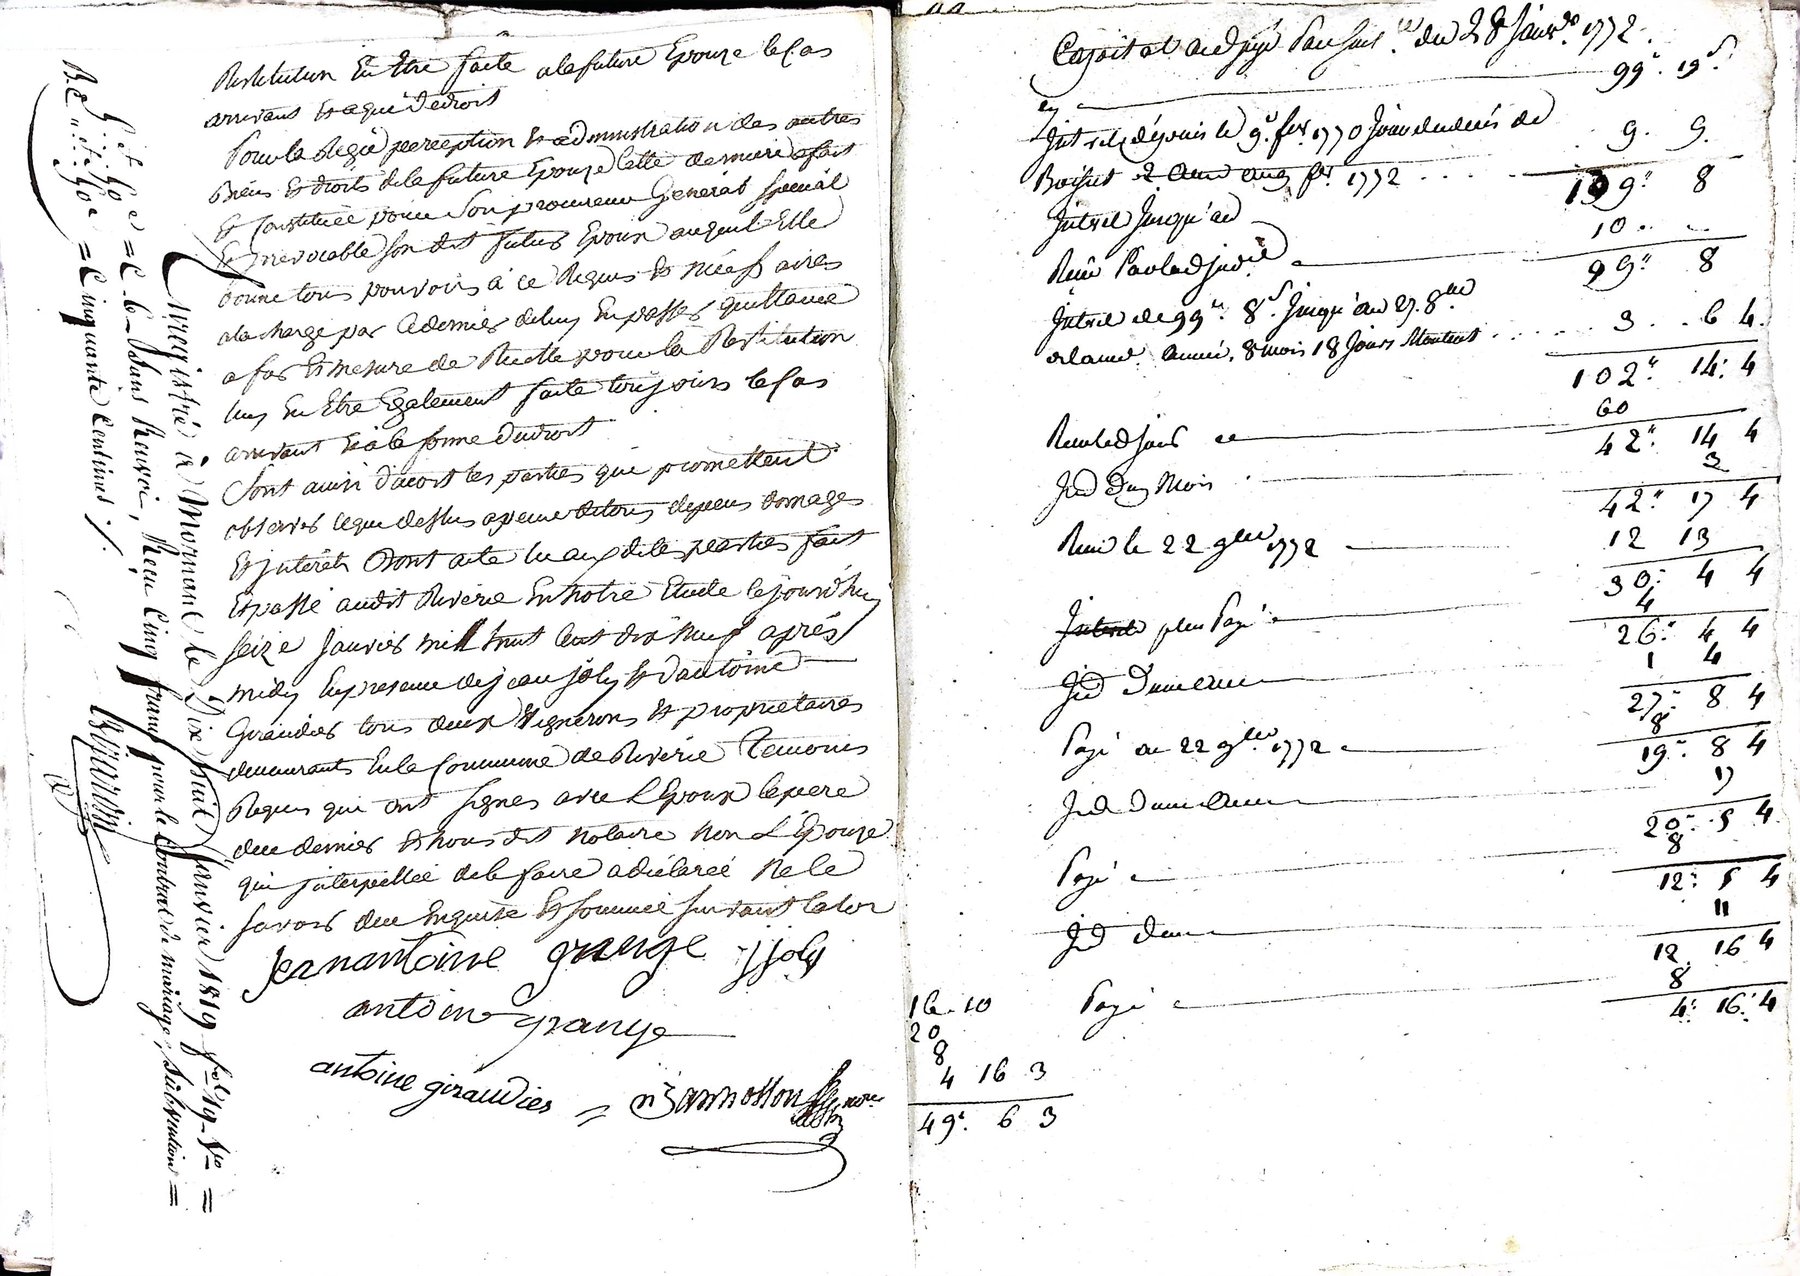 Restitution En Etre faite a la future Epouze le Cas
arrivant Et a qui de droit
Pour la Regie perception Et administration des autres
Biens Et droits de la future Epouze Cette derniere a fait
Et Constitué pour Son procureur General Special
Et Irrevocable Son dit futur Epoux auquel Elle
donne tous pouvoirs à ce Requis Et Necessaires
a la charge par Ce dernier de luy En passer quittance
a fur Et mesure de Recette pour la Restitution
luy En Etre Egalement faite toujours le Cas
arrivant Et à la forme du droit
Sont ainsi d'acort les parties qui promettent
observer ce que dessus a peine de tous depens domages
Et interets Dont acte lu aux dites parties fait
Et passé audit Riverie En notre Etude Cejourd'huy
Seize Janvier mil huit Cent dix neuf après
midy En presence de jean joly Et d'antoine
Giraudier tous deux Vignerons Et propriétaires
demeurants En la Commune de Riverie Temoins
Requis qui ont Signés avec L'Epoux le pere
de ce dernier Et nous dit notaire Non L'Epouze
qui interpellée de le faire a déclaré Ne le
Savoir de ce Enquise Et Sommée Suivant la loi
Jean antoine grange j joly
antoine grange
antoine giraudier = nre
Enregistré à Mornant le Dix huit Janvier 1819 fol 19 Vo =
= Cb = Sans Renvoi, Reçu Cinq francs pour le Contrat de mariage, Subvention =
= Cinquante Centimes /.
Capital adjugé Par Sentce du 28 Janv. 1772.
99" 19s
Intrets depuis le 9e fer 1770 Jour de
9. 9
2 aud fer 1772
109" 8
Intret Jusqu'au
10
Reçu
99" 8
Intret de 99" 8s Jusqu'au 27. 8bre
3 6 4
année, 8 mois 18 Jours Montent
102" 14 4
60
42" 14 4
3
Jd Dun Mois
42" 17 4
Reçu le 22 9bre 1772
12 13
30 4 4
plus Payé
4
26" 4 4
Jd
1 4
27" 8 4
Payé au 22 9bre 1772
8
19" 8 4
Jd
17
20" 5 4
Payé
8
12" 5 4
Jd
11
12 16 4
Payé
8
4" 16 4
16. 10
20
8
4 16 3
49" 6 3